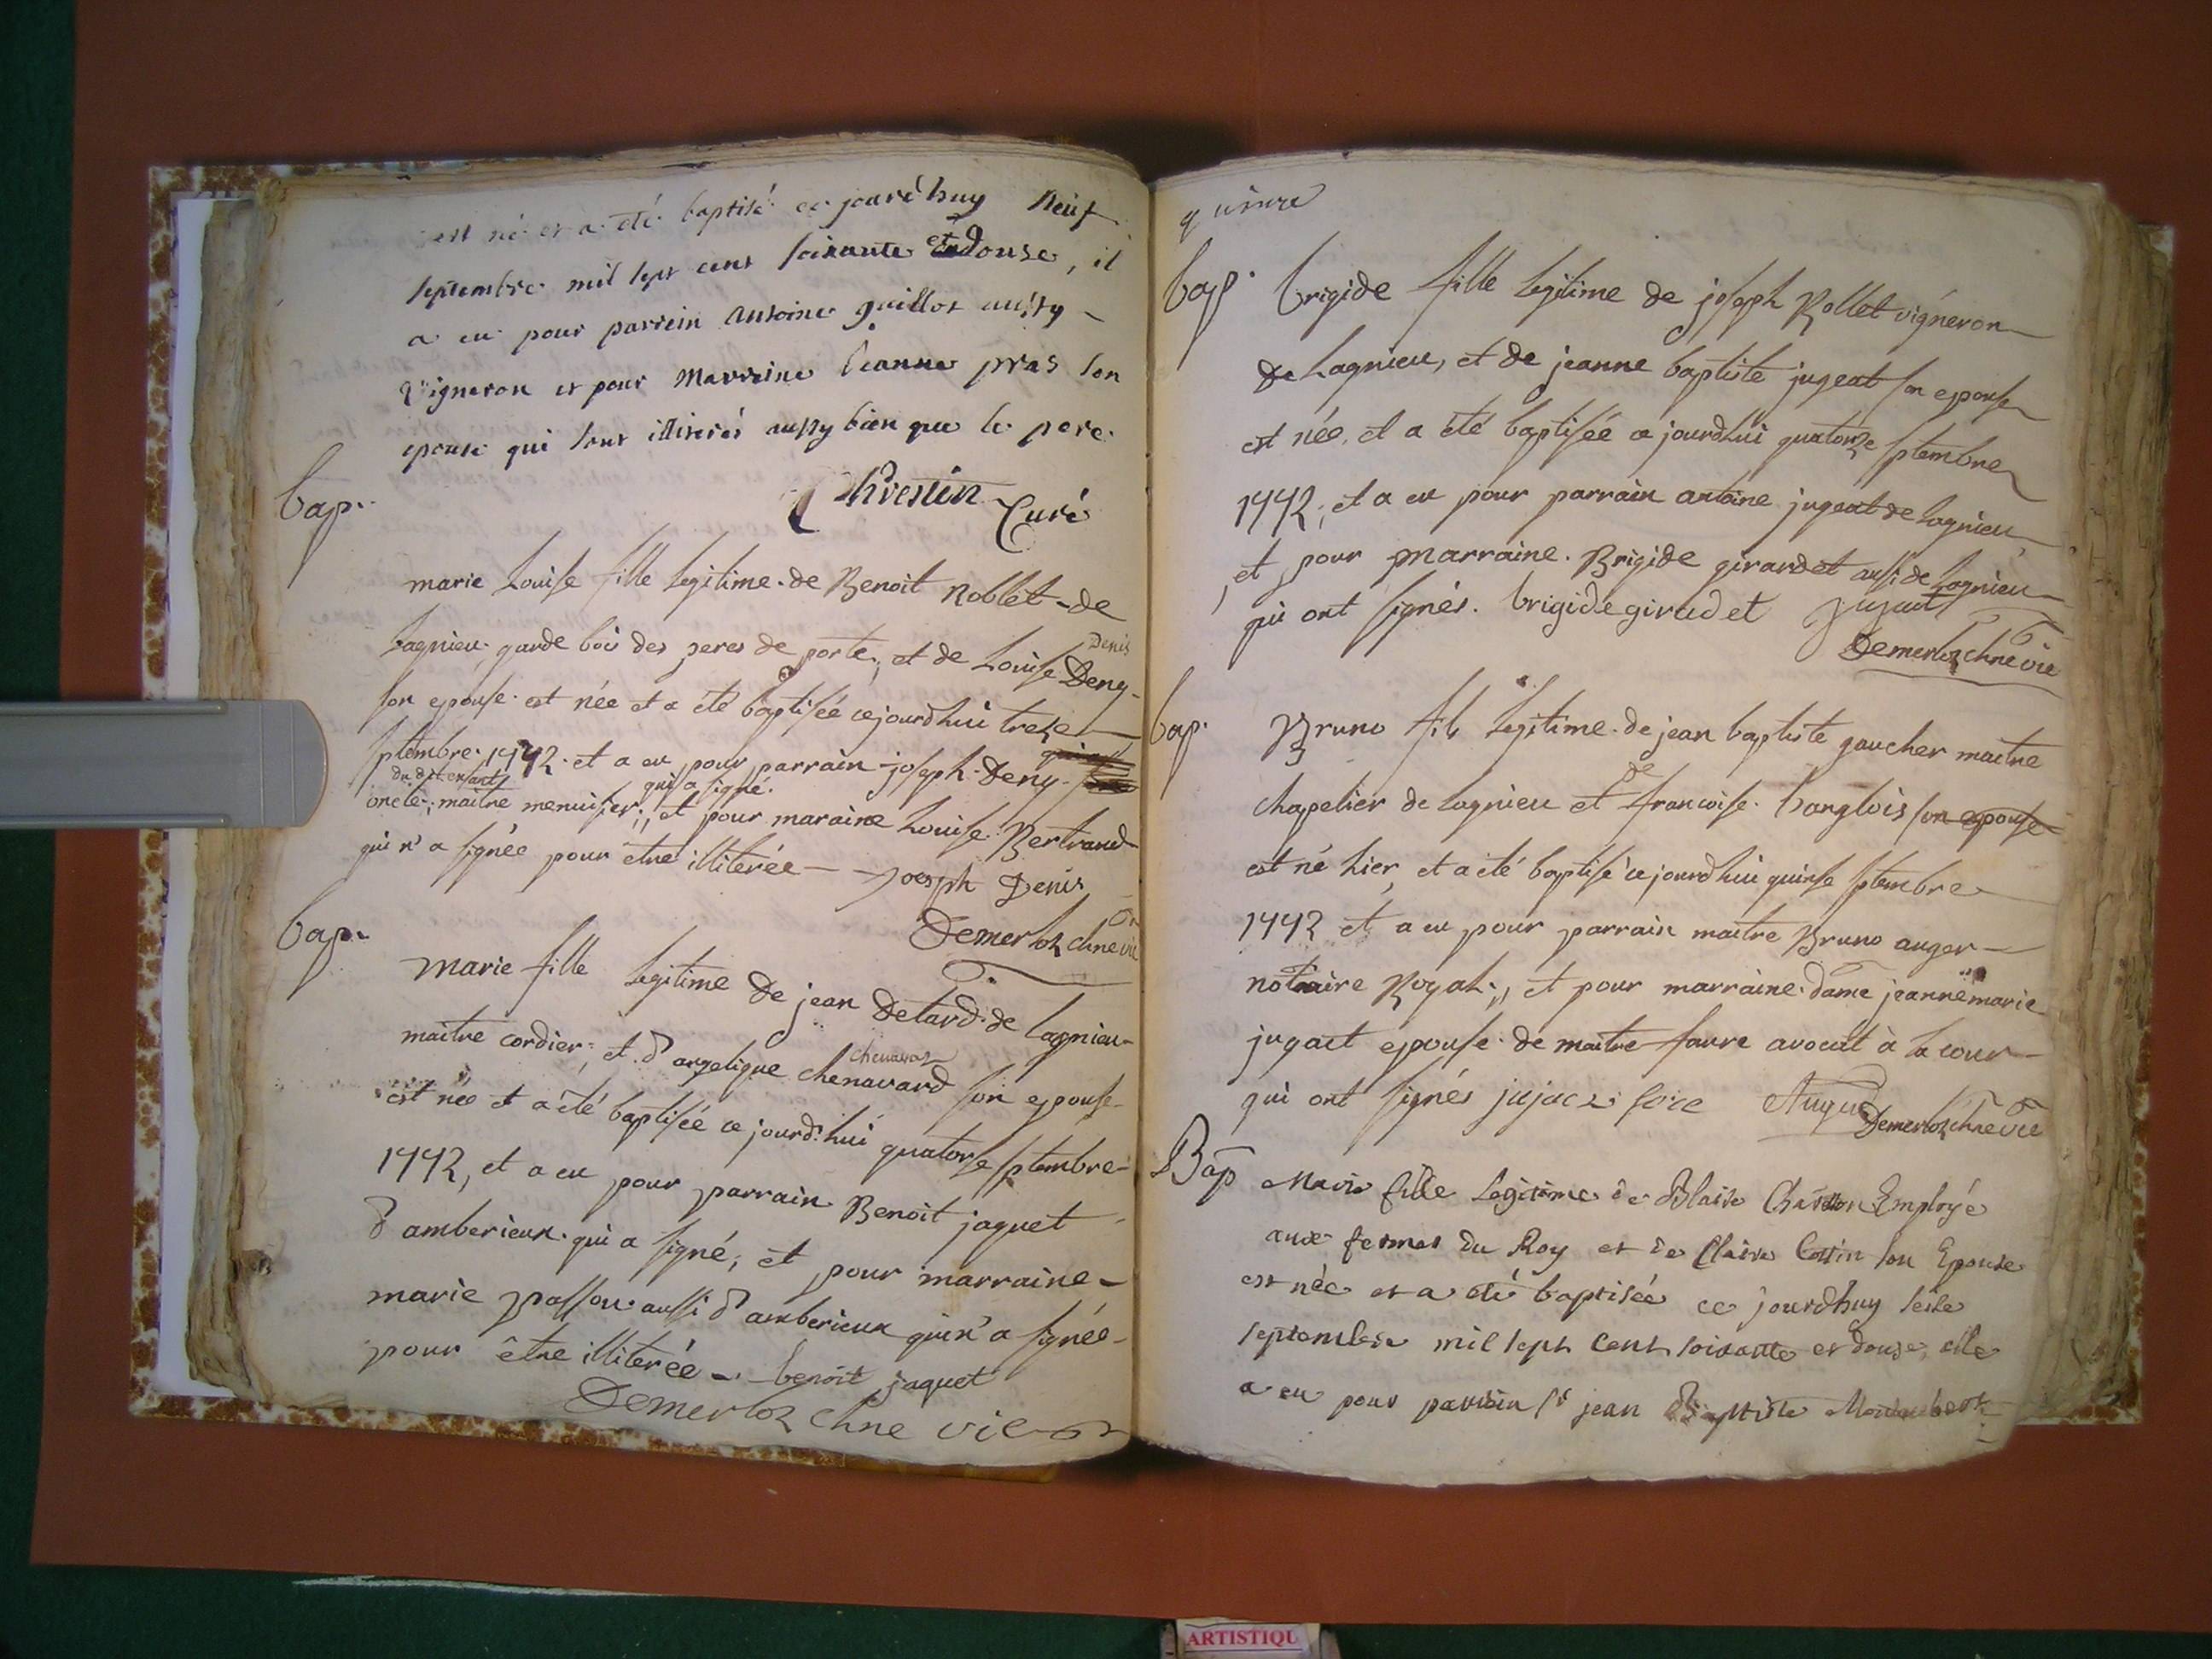 est né et a été baptisé ce jourd'huy neuf
septembre mil sept cent soixante et douse, il
a eu pour parrein Antoine guillot aussy
Vigneron et pour Marreine Jeanne pras son
epouse qui sont illiterés aussy bien que le pere.
Chrestin Curé
bap.
marie Louise fille legitime de Benoit Noblet de
lagnieu garde bois des peres de porte, et de Louise Deny
Denis
son epouse est née et a été baptisée cejourdhui treze
septembre 1772. et a eu pour parrain joseph Deny
du dit enfant qui a signé.
oncle, maitre menuisier, et pour maraine Louise Bertrand
qui n'a signée pour etre illiterée Joesph Denis
Demerloz chne vic
bap.
marie fille legitime de jean Detard de lagnieu
maitre cordier, et d'angelique chenavard son epouse
chenavas
est née et a été baptisée ce jourd'hui quatorse septembre
1772, et a eu pour parrain Benoit jaquet
d'amberieux qui a signé, et pour marraine
marie passou aussi d'amberieux qui n'a signée
pour être illiterée benoit jaquet
Demerloz chne vic
quinze
bap. brigide fille legitime de joseph Rollet vigneron
de Lagnieu, et de jeanne baptiste jugeat son epouse
est née, et a été baptisée ce jourdhui quatorze septembre
1772, et a eu pour parrain antoine jugeat de lagnieu
et pour marraine Brigide girardet aussi de Lagnieu
qui ont signés. brigide girardet Jujeat
Demerloz chne vic
bap. Bruno fils legitime de jean baptiste gaucher maitre
chapelier de lagnieu et de francoise langlois son epouse
est né hier, et a été baptisé ce jourdhui quinse septembre
1772 et a eu pour parrain maitre Bruno auger
notaire Royal, et pour marraine dame jeanne marie
jugact epouse de maitre faure avocat à la cour
qui ont signés
Demerloz chne vic
Bap Marie fille Legitime de Blaise Chatton Employé
aux fermes du Roy et de Claire Cottin son Epouse
est née et a été baptisée ce jourdhuy seise
septembre mil sept cent soixante et douse, elle
a eu pour parrein sr jean Baptiste